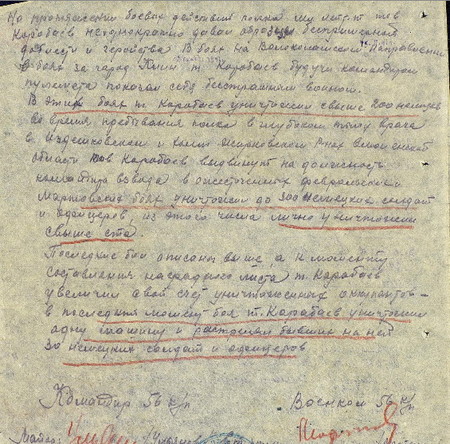 На протяжении боевых действий полка тов
Карабаев неоднократно давал образцы беспримерной
доблести и геройства. В боях на Волоколамском направлении
в боях за город Клин т. Карабаев будучи командиром
пулемета показал себя бесстрашным воином.
В этих боях т. Карабаев уничтожил свыше 200 немцев
Во время пребывания полка в глубоком тылу врага
в Издешковском и районах Смоленской
области тов Карабаев выдвинут на должность
командира взвода в ожесточенных февральских и
Мартовских боях уничтожил до 300 немецких солдат
и офицеров, из этого числа лично уничтожил
свыше ста.
Последние бои описаны выше, а к моменту
составления наградного листа т. Карабаев
увеличил свой счет уничтоженных оккупантов -
в последний момент боя т. Карабаев уничтожил
одну машину и расстрелял бывших на ней
30 немецких солдат и офицеров
Командир 56 к/п Военком 56 к/п
Майор